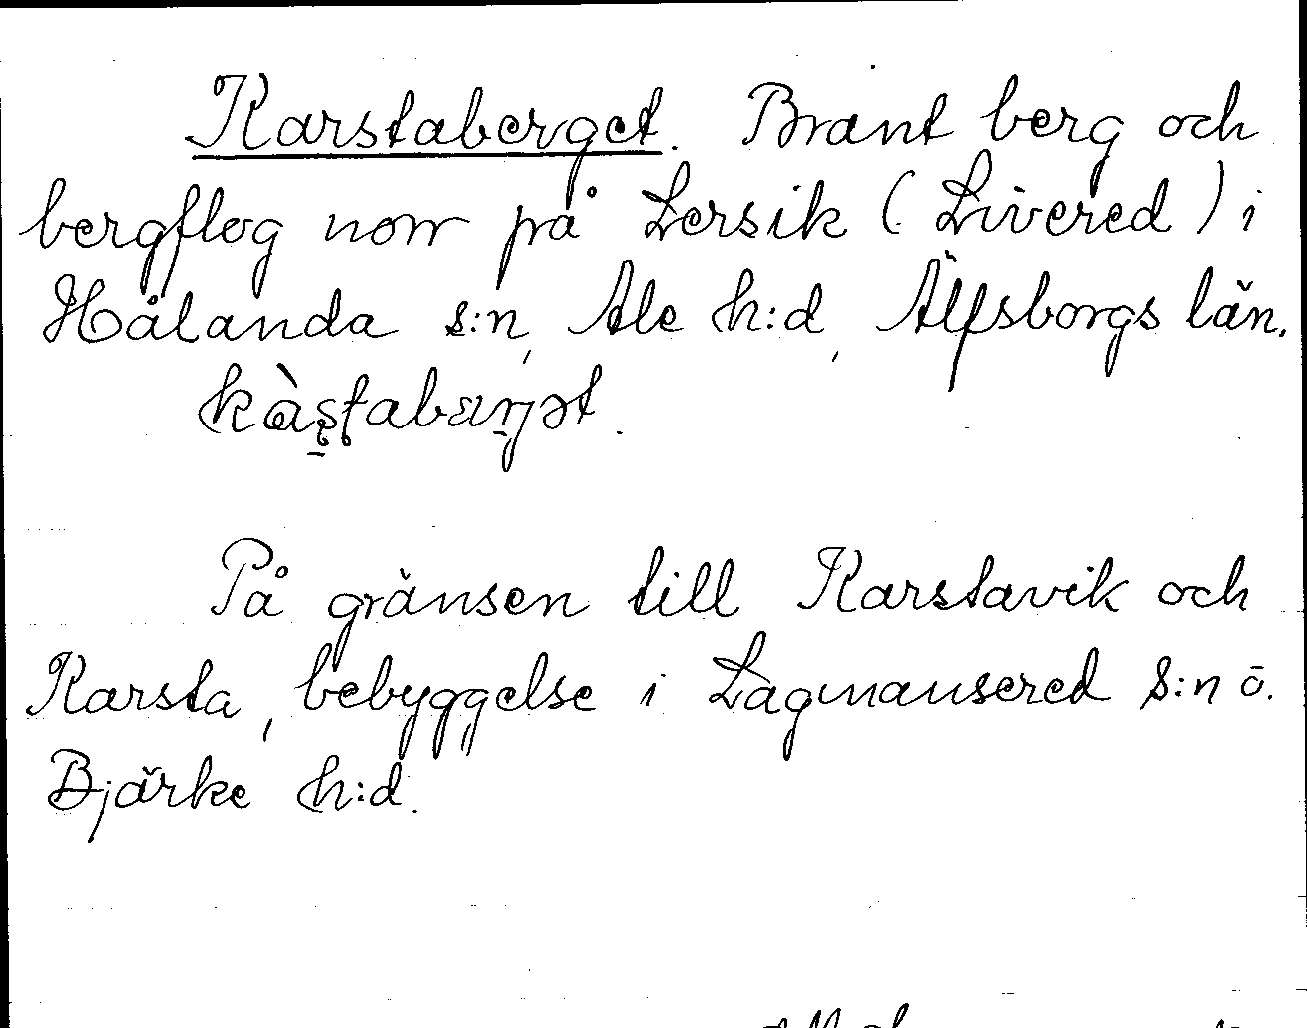 Karstaberget. Brant berg och
bergflog norr på Lersik (Livered) i
Hålanda s:n, Ale h:d, Älfsborgs län.
På gränsen till Karstavik och
Karsta, bebyggelse i Lagmansered s:n ö.
Bjärke h:d.